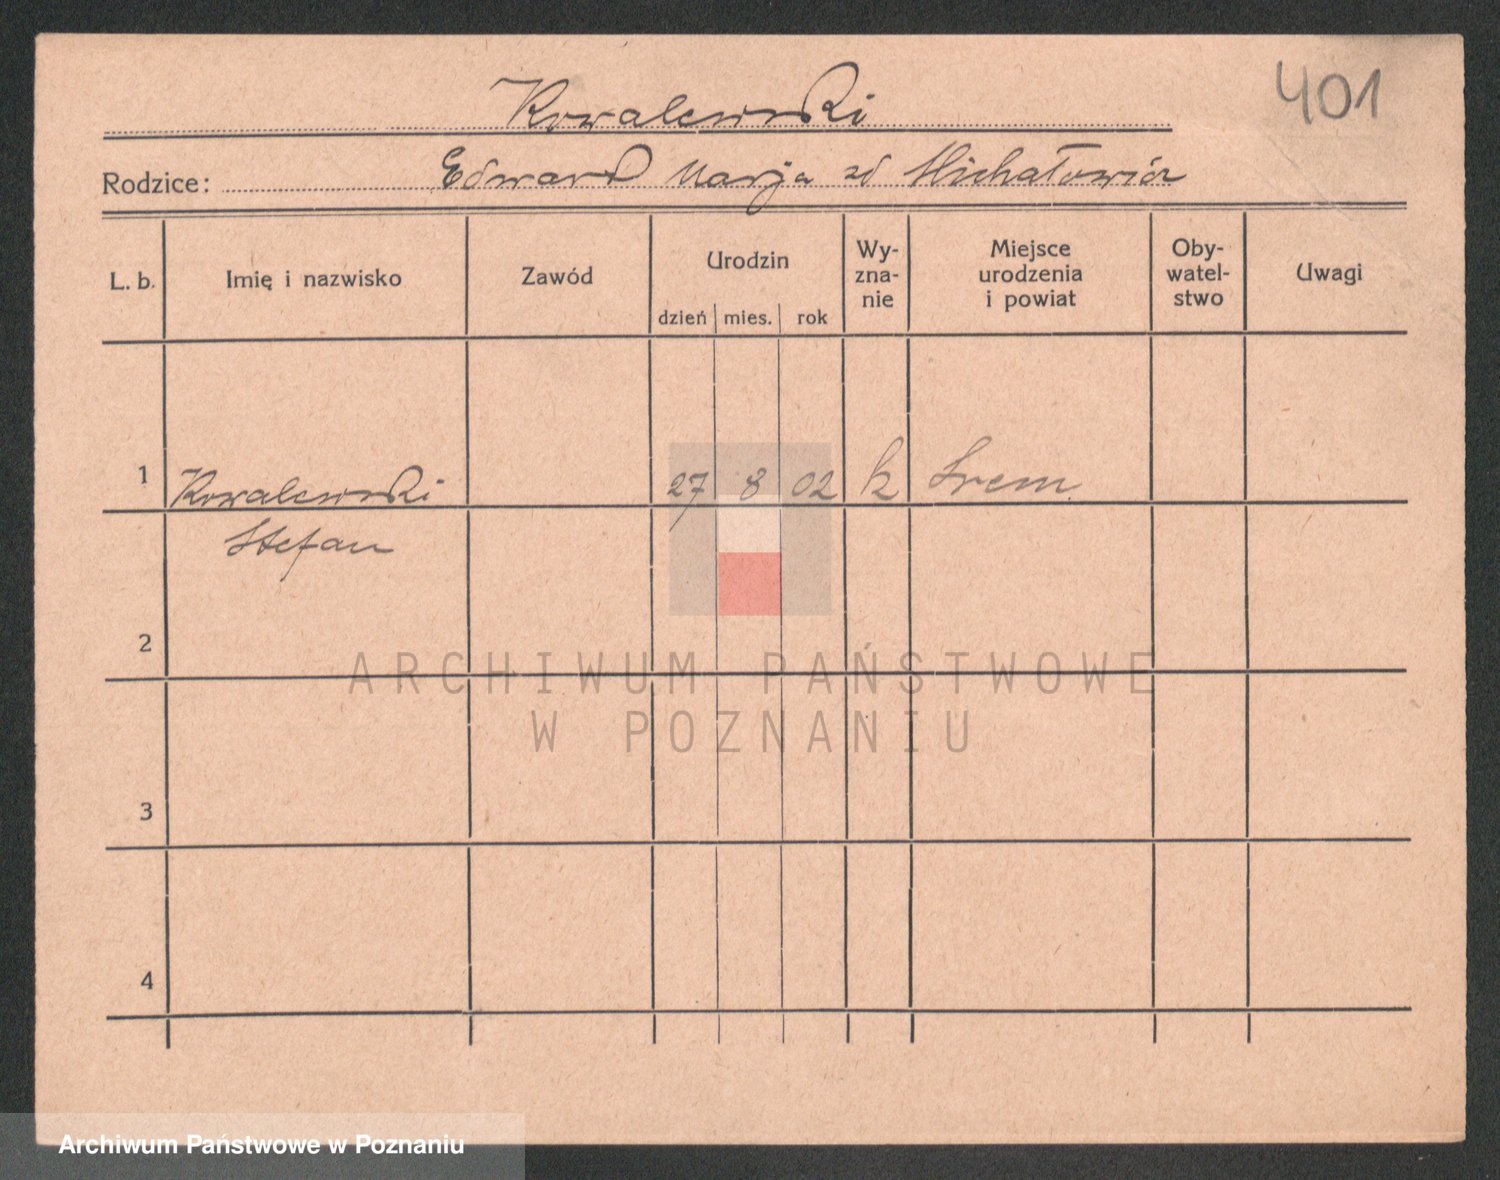 401
Kowalewski
Rodzice: Edward Marja zd Michałowicz
L. b. Imię i nazwisko Zawód Urodzin dzień mies. rok Wy-zna-nie Miejsce urodzenia i powiat Oby-watel-stwo Uwagi
1 Kowalewski 27 8 02 k Śrem
Stefan
2
ARCHIWUM PAŃSTWOWE
W POZNANIU
3
4
Archiwum Państwowe w Poznaniu